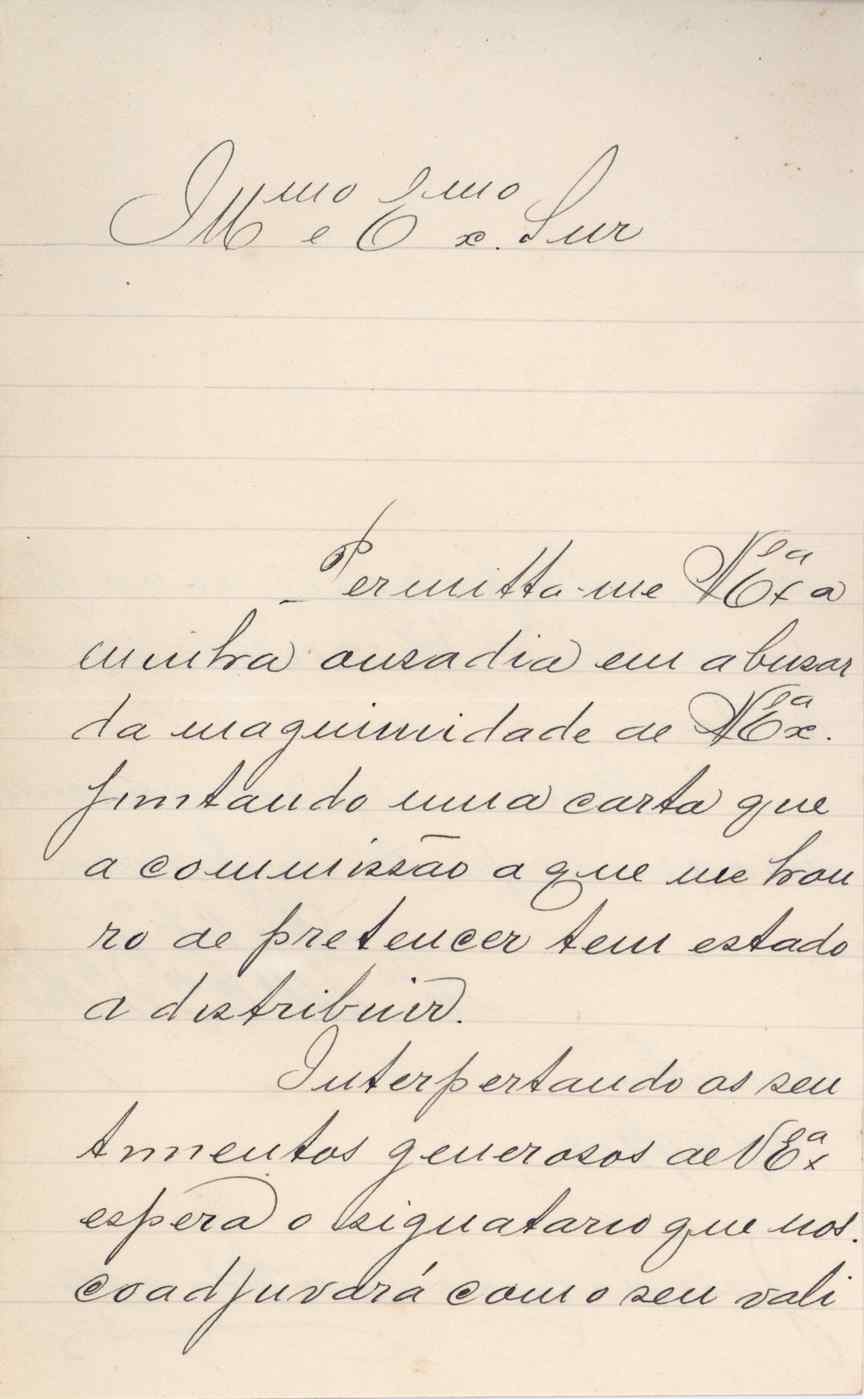 Illmo e Exmo. Snr
Permitta-me V Exª a
minha ousadia em abusar
da magnimidade de V Exª.
juntando uma carta que
a commissão a que me hon
ro de pretencer tem estado
a distribuir.
Interpertando os sen
timentos generosos de V Exª
espera o signatario que nos.
coadjuvará com o seu vali